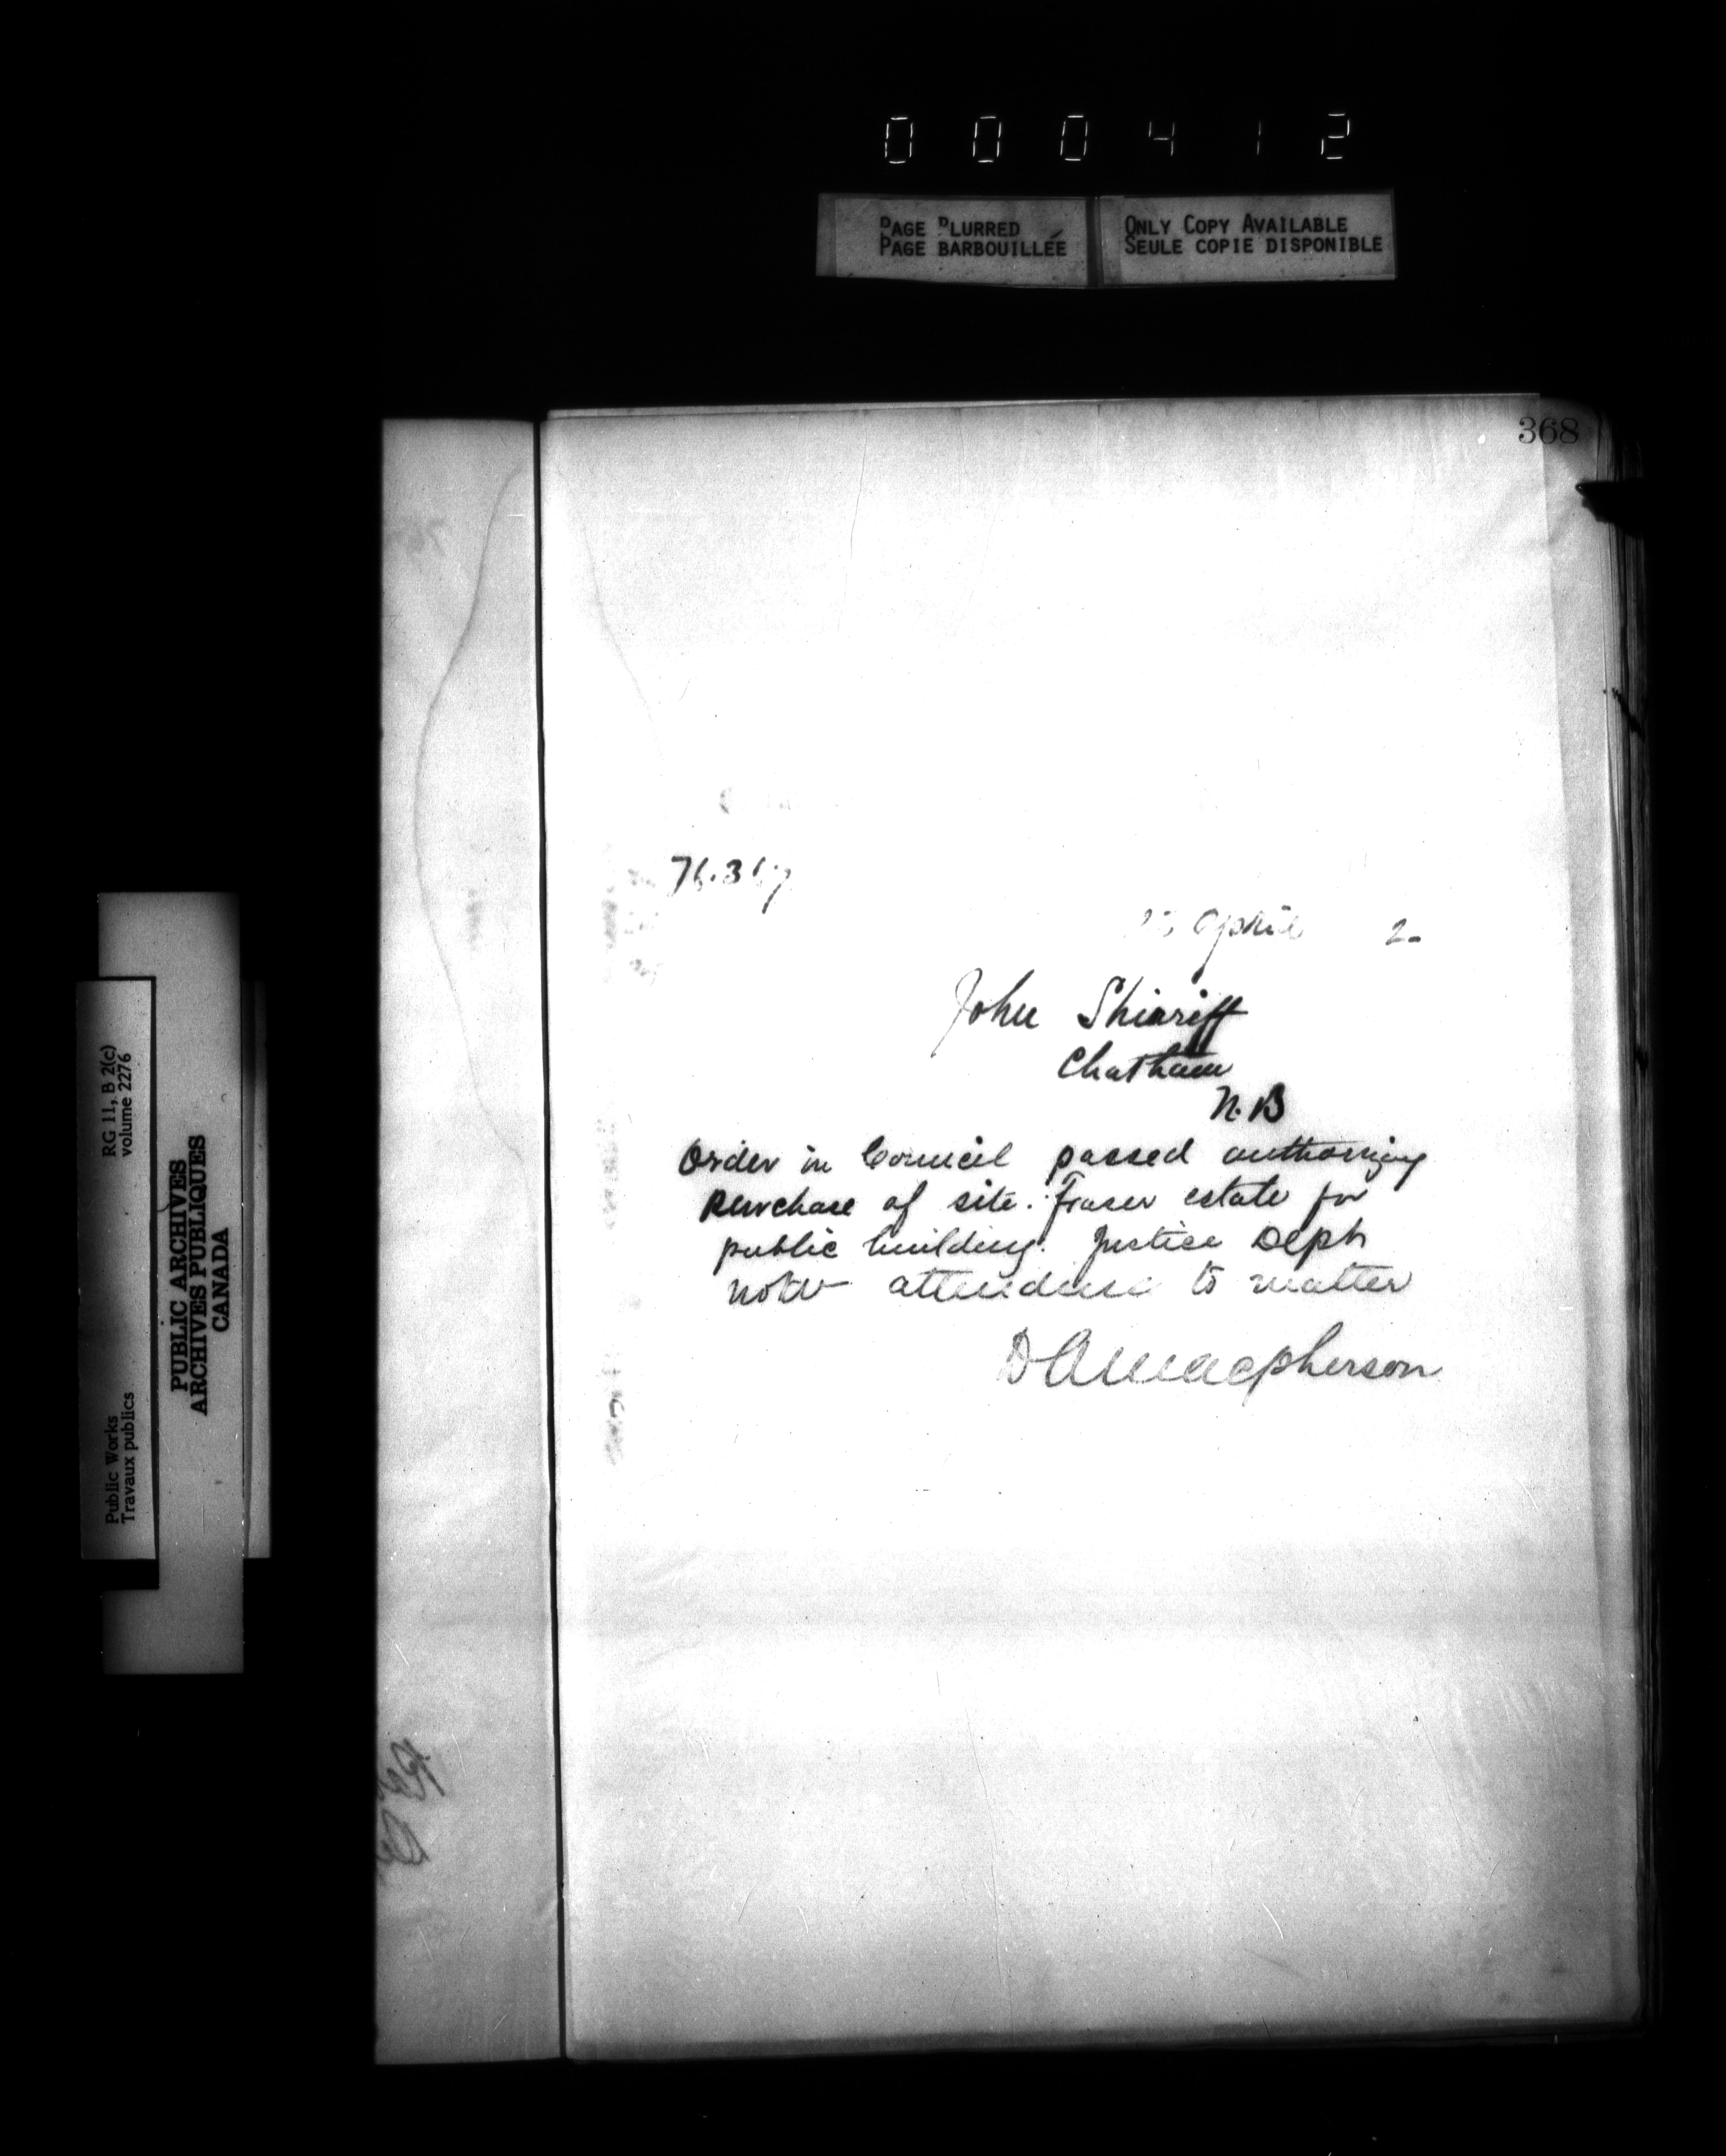 000412
PAGE BLURRED
PAGE BARBOUILLÉE
ONLY COPY AVAILABLE
SEULE COPIE DISPONIBLE
368
April 2
John Shirriff
Chatham
N.B
Order in Council passed authorizing
purchase of site. Fraser estate for
public building. Justice Dept
now attending to matter
D A Macpherson
Public Works
Travaux publics
RG 11, B 2(c)
volume 2276
PUBLIC ARCHIVES
ARCHIVES PUBLIQUES
CANADA